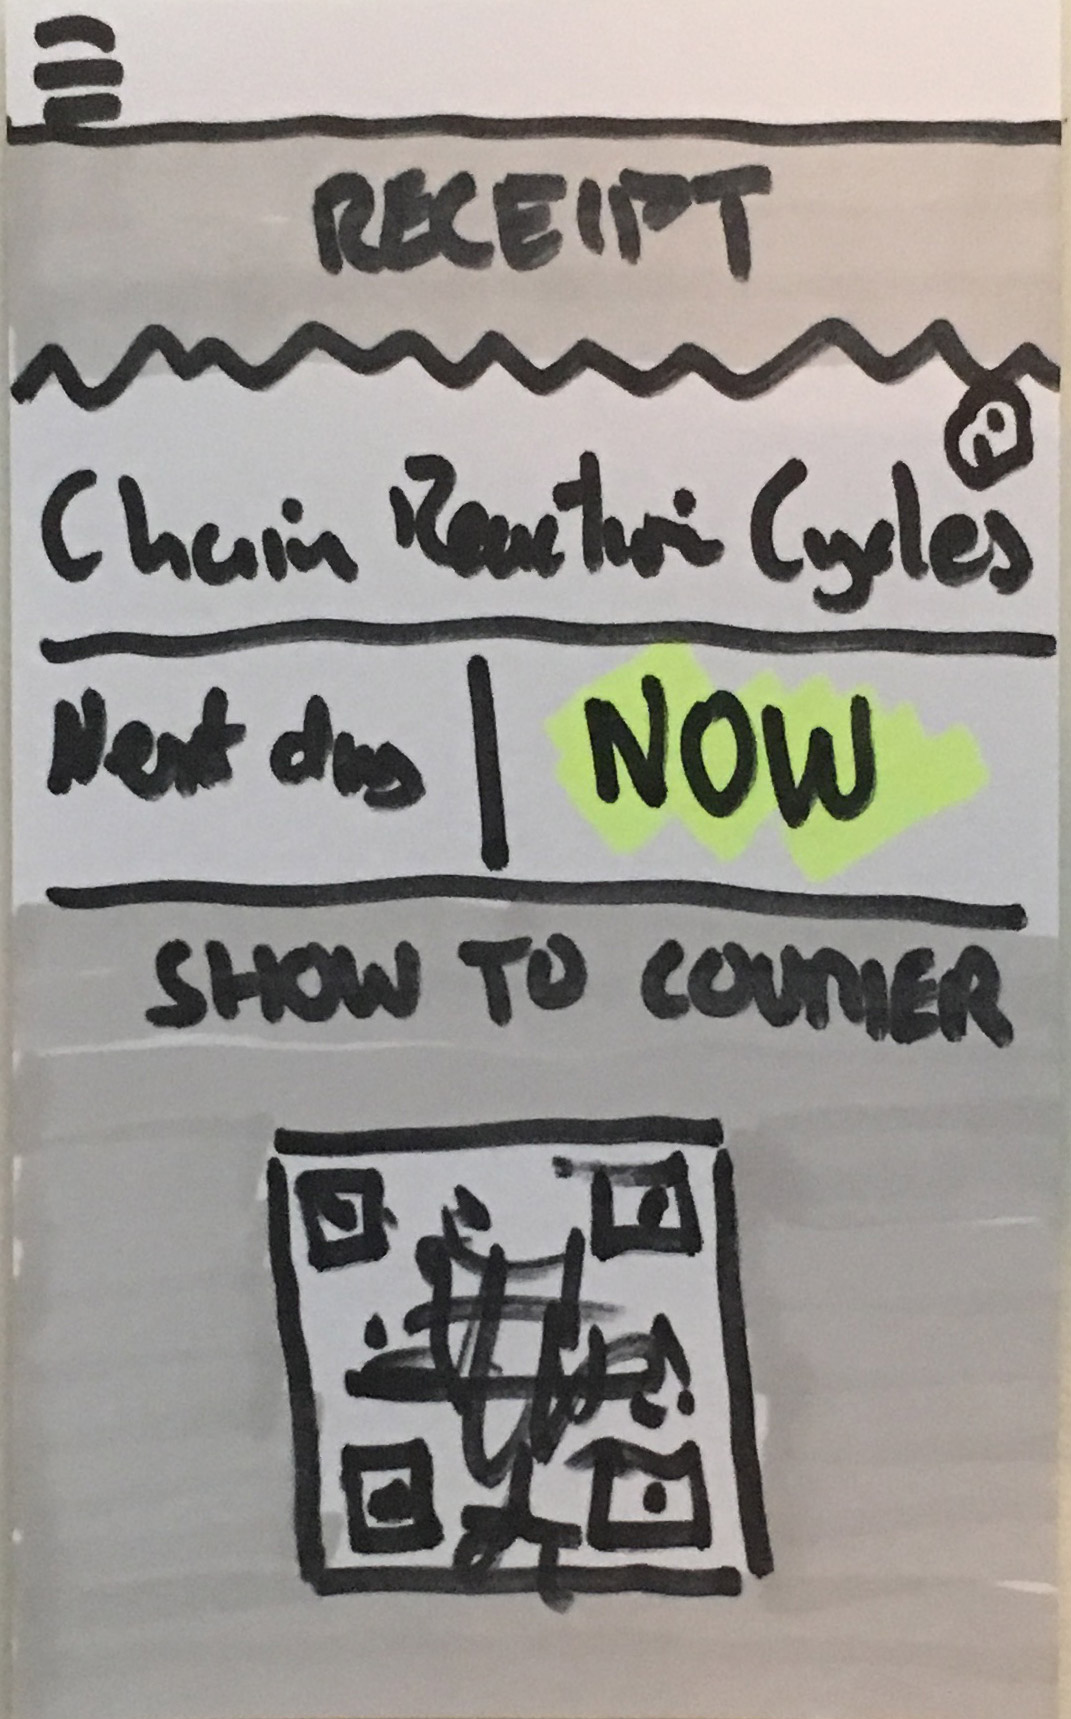 RECEIPT
Chain Reaction Cycles
Next day | NOW
SHOW TO COURIER